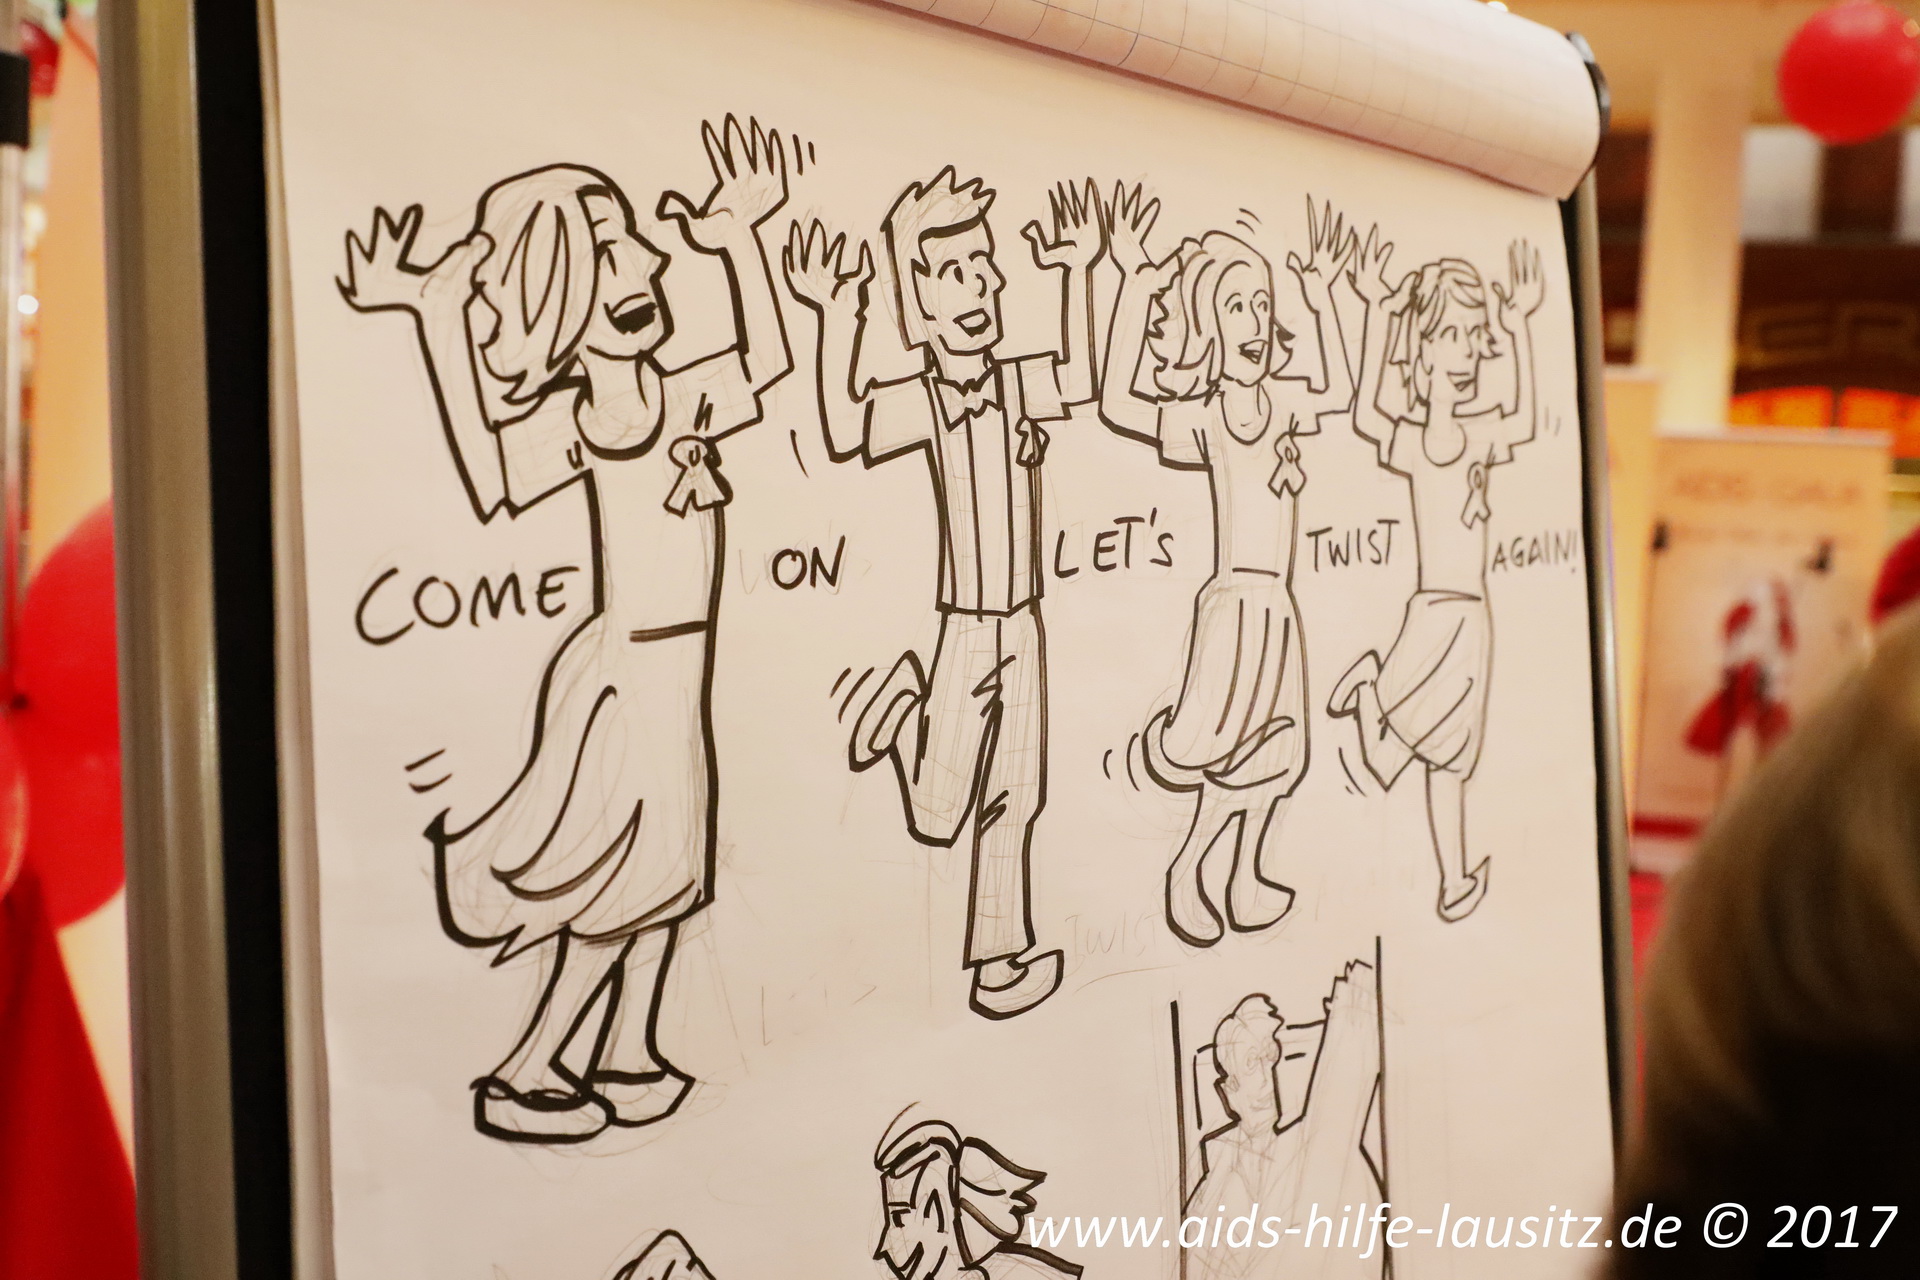 COME ON LET'S TWIST AGAIN!
TWIST
www.aids-hilfe-lausitz.de © 2017